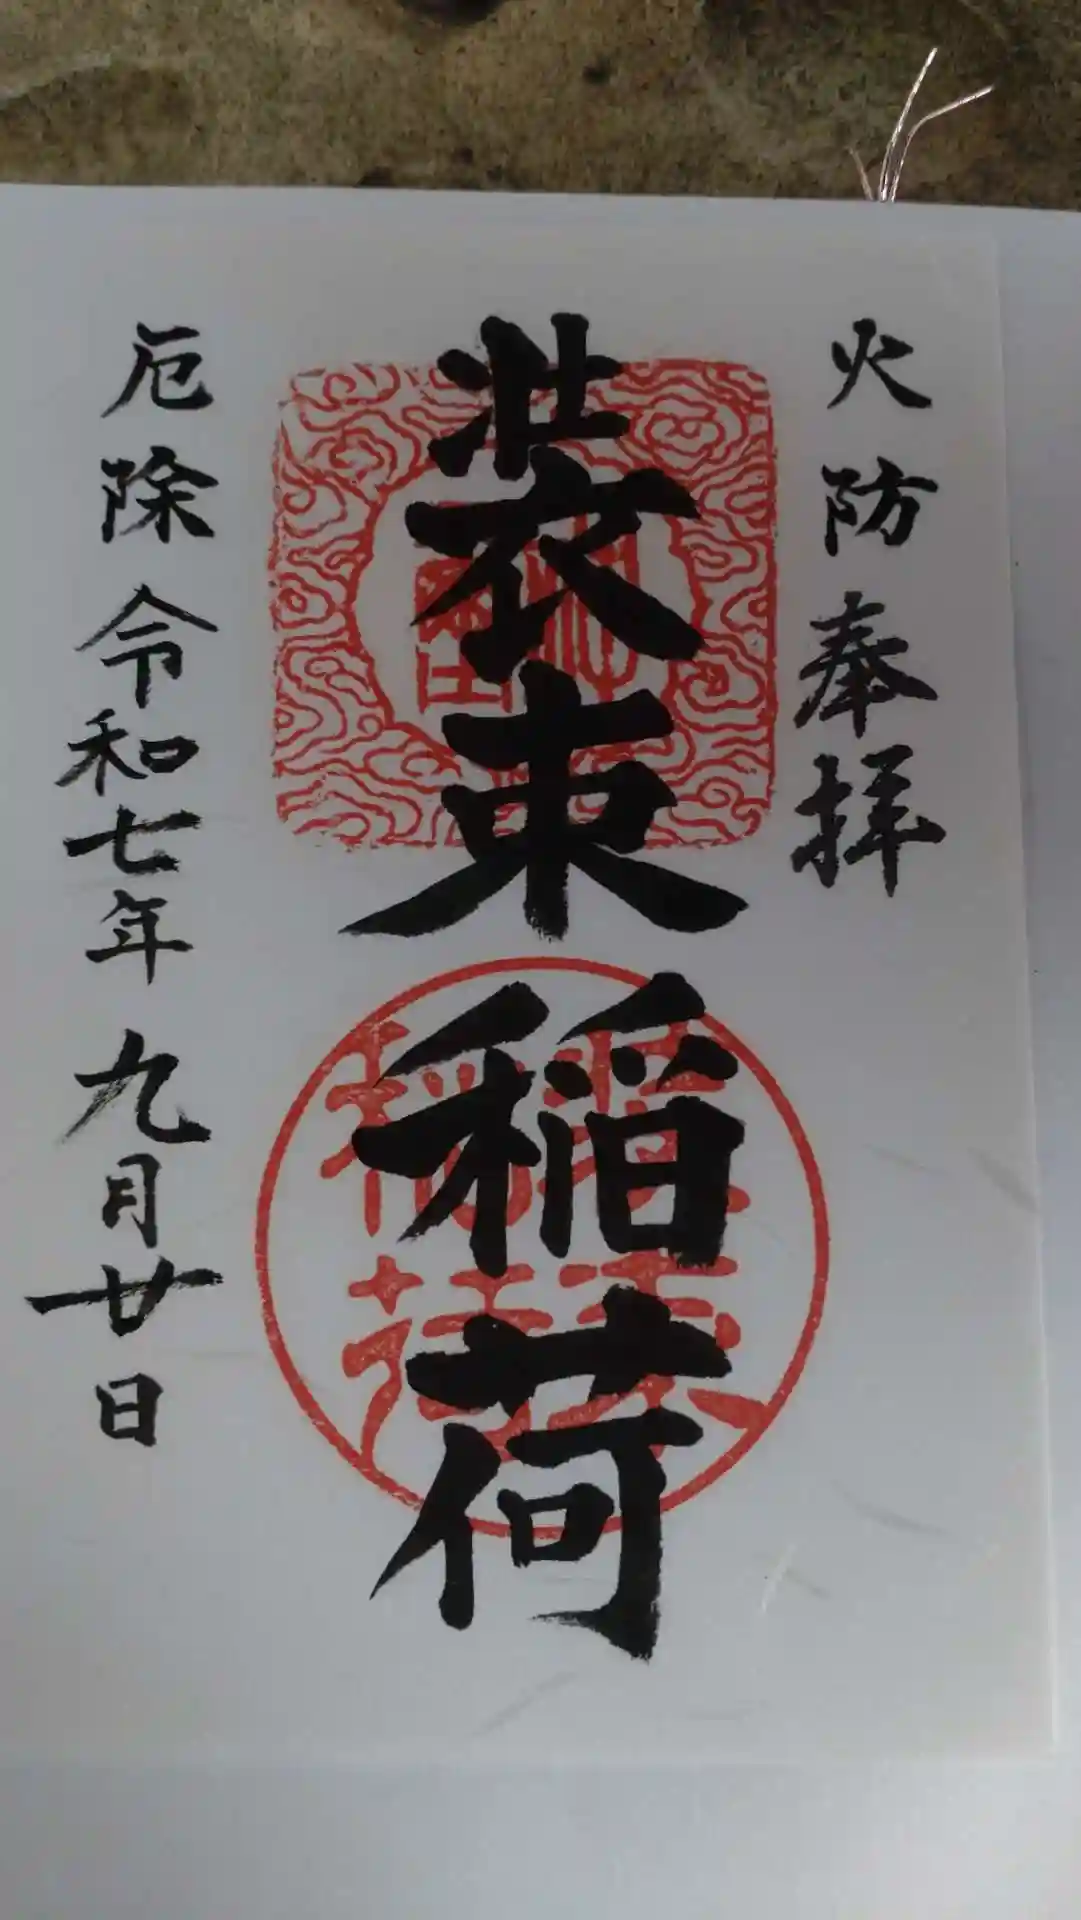 火防 奉拝
装束稲荷
厄除 令和七年 九月廿日